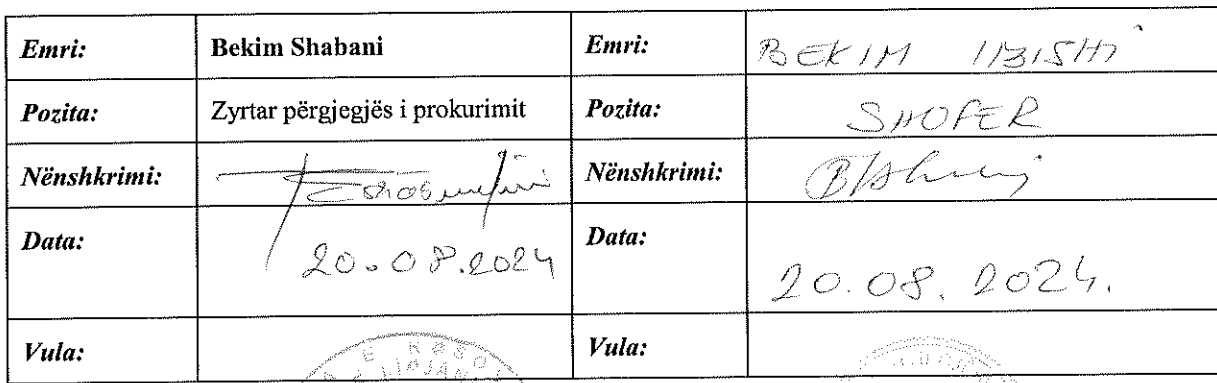 Emri: Bekim Shabani Emri: BEKIM IBISHI
Pozita: Zyrtar përgjegjës i prokurimit Pozita: SHOFER
Nënshkrimi: Nënshkrimi:
Data: 20.08.2024 Data: 20.08.2024.
Vula: Vula: